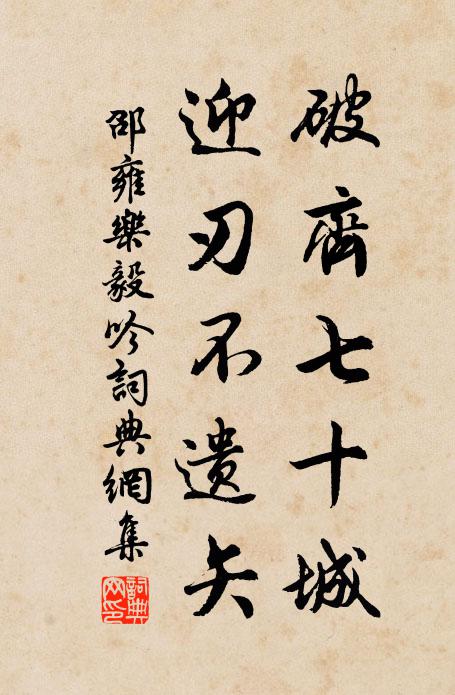 破齊七十城
迎刃不遺矢
邵雍樂毅吟詞典網集
詞典網印